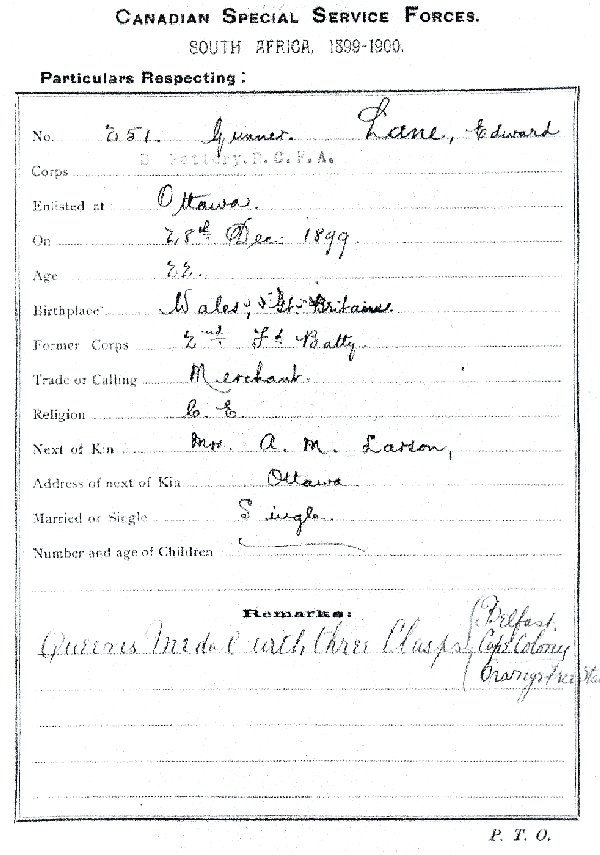 CANADIAN SPECIAL SERVICE FORCES.
SOUTH AFRICA, 1899-1900.
Particulars Respecting:
No. 251. Gunner. Lane, Edward
Corps D Battery, R.C.F.A.
Enlisted at Ottawa.
On 28th Dec. 1899.
Age 22.
Birthplace Wales, Gt. Britain
Former Corps 2nd Fd Batty.
Trade or Calling Merchant.
Religion C. E.
Next of Kin Mrs. A. M. Larson,
Address of next of Kin Ottawa
Married or Single Single.
Number and age of Children
Remarks:
Queens Medal with three Clasps (Belfast.
Cape Colony
Orange Free Sta
P. T. O.